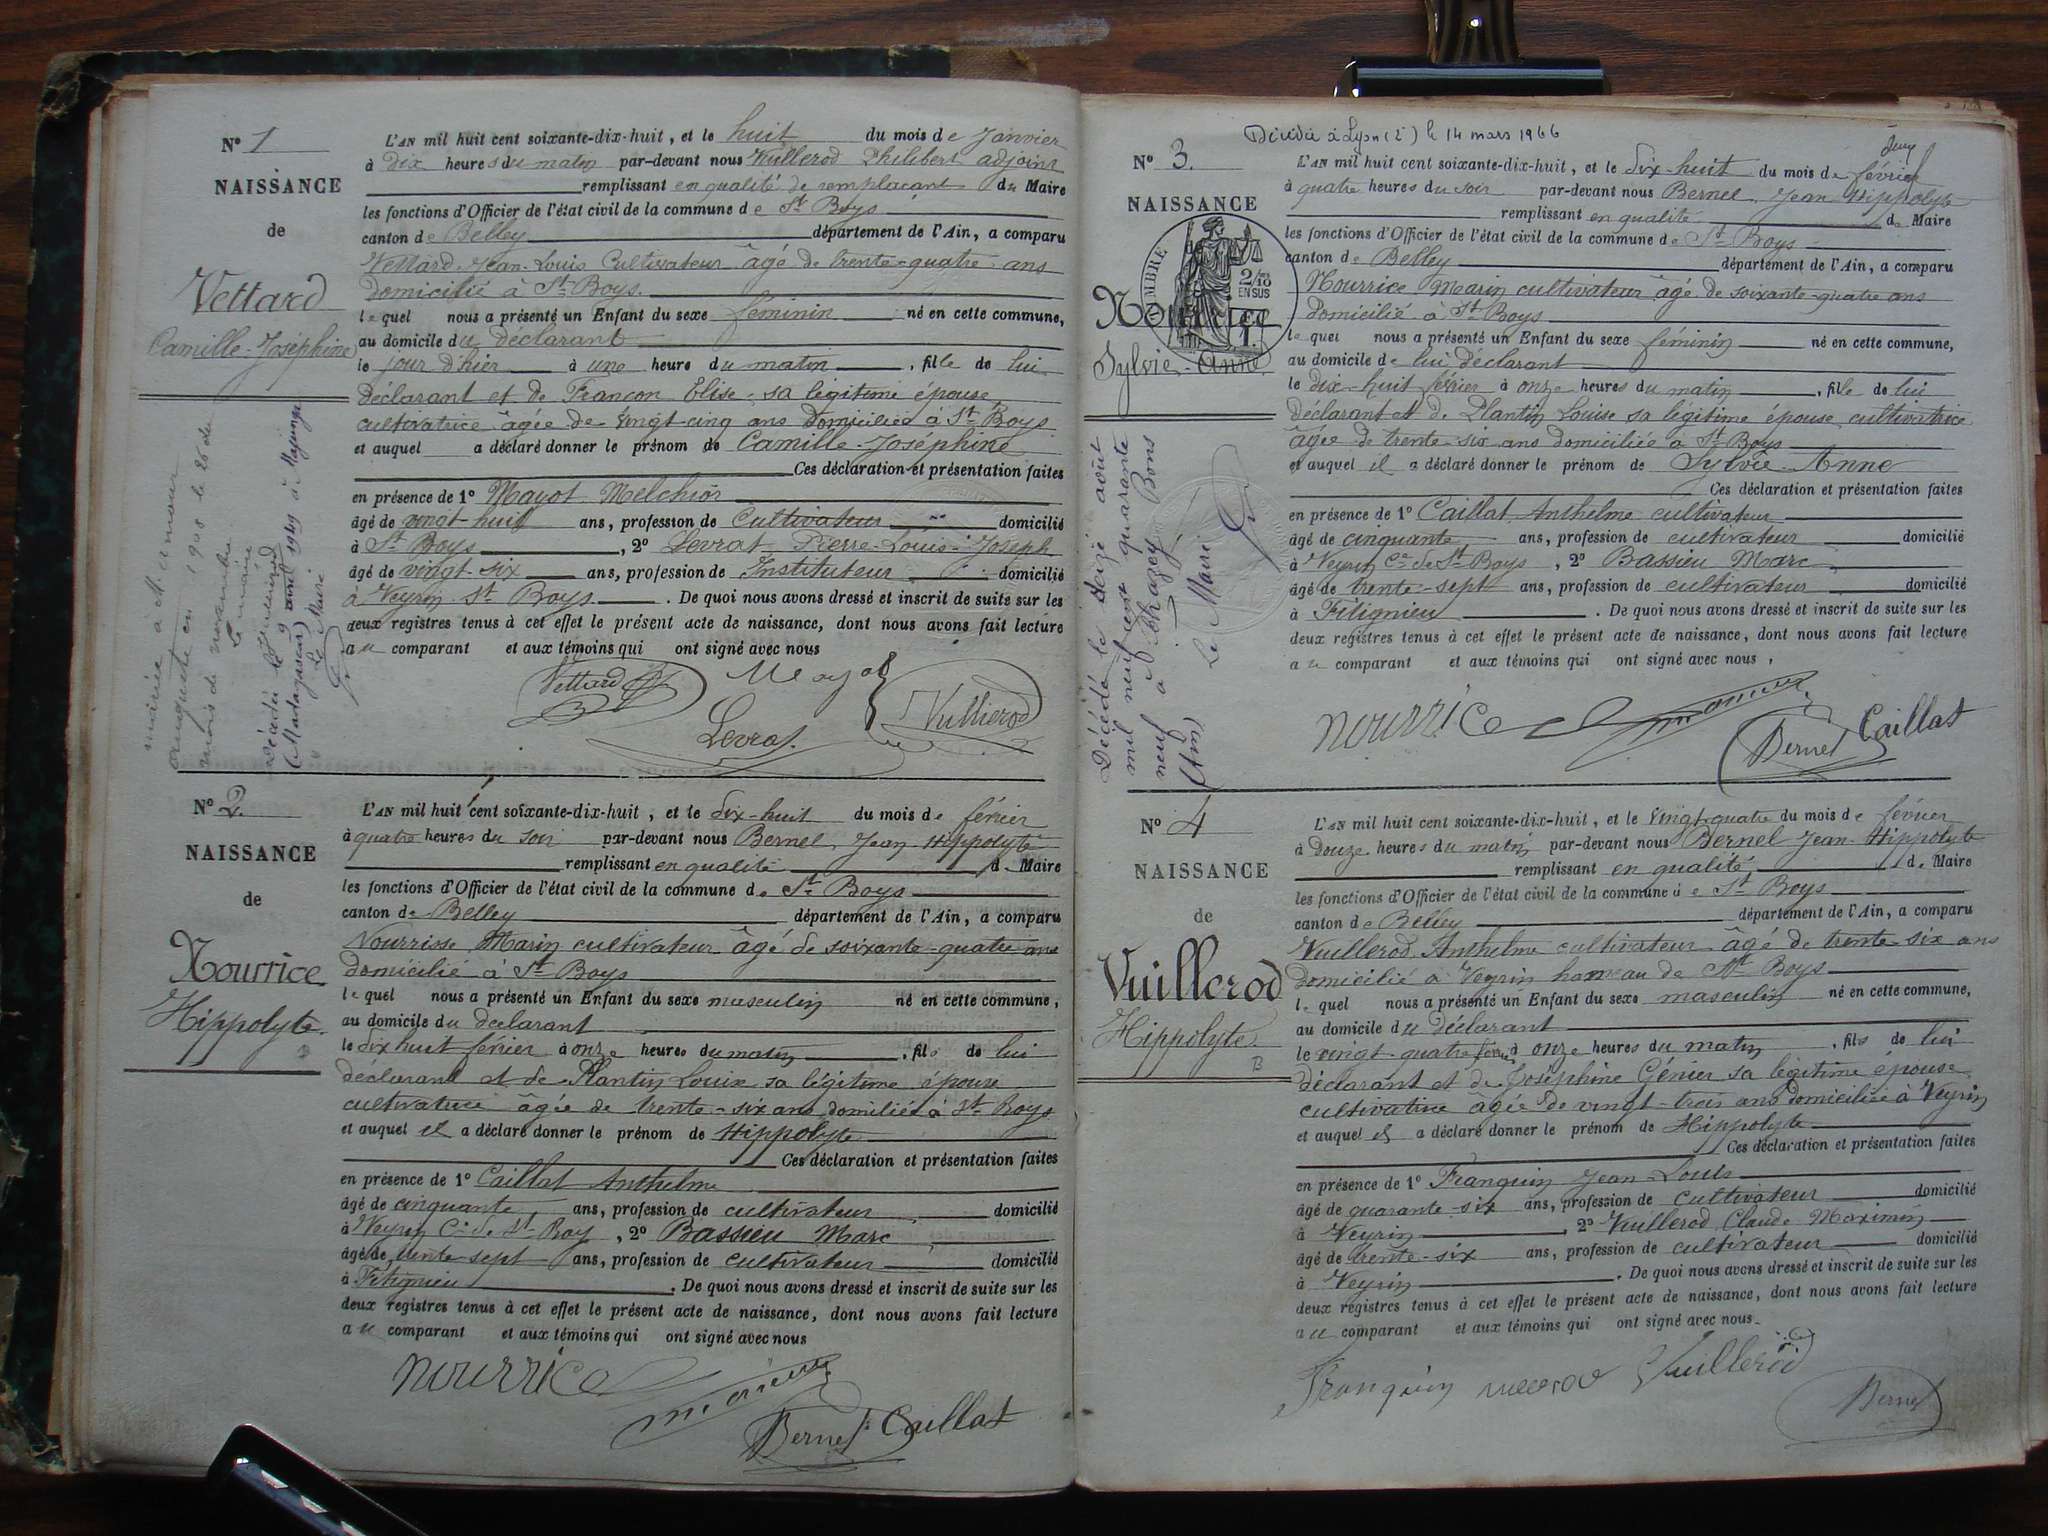 Nº 1
NAISSANCE
de
Vettard
Camille-Joséphine
L'AN mil huit cent soixante-dix-huit, et le huit du mois de Janvier
à dix heures du matin par-devant nous Vullerod Philibert adjoint
remplissant en qualité de remplaçant du Maire
les fonctions d'Officier de l'état civil de la commune de St Boys
canton de Belley département de l'Ain, a comparu
Vettard Jean-Louis Cultivateur âgé de trente-quatre ans
domicilié à St Boys.
lequel nous a présenté un Enfant du sexe féminin né en cette commune,
au domicile du déclarant
le jour d'hier à une heure du matin, fille de lui
déclarant et de Françon Elise sa légitime épouse
cultivatrice âgée de vingt-cinq ans domiciliée à St Boys
et auquel a déclaré donner le prénom de Camille-Joséphine
Ces déclaration et présentation faites
en présence de 1º Mayot Melchior
âgé de vingt-huit ans, profession de Cultivateur domicilié
à St Boys, 2º Levrat Pierre-Louis-Joseph
âgé de vingt-six ans, profession de Instituteur domicilié
à Veyrin St Boys. De quoi nous avons dressé et inscrit de suite sur les
deux registres tenus à cet effet le présent acte de naissance, dont nous avons fait lecture
au comparant et aux témoins qui ont signé avec nous
Vettard Mayot
Levrat Vullierod
mariée à
en 1908 le 26 du
mois de novembre
Le maire
Décédée le 9 avril 1949 à Majunga
(Madagascar)
Le Maire
Nº 2.
NAISSANCE
de
Nourrice
Hippolyte.
L'AN mil huit cent soixante-dix-huit, et le dix-huit du mois de février
à quatre heures du soir par-devant nous Bernel Jean Hippolyte
remplissant en qualité de Maire
les fonctions d'Officier de l'état civil de la commune de St Boys
canton de Belley département de l'Ain, a comparu
Nourrisse Marin cultivateur âgé de soixante-quatre ans
domicilié à St Boys
lequel nous a présenté un Enfant du sexe masculin né en cette commune,
au domicile du déclarant
le dix huit février à onze heures du matin, fils de lui
déclarant et de Plantin Louise sa légitime épouse
cultivatrice âgée de trente-six ans domiliée à St Boys
et auquel il a déclaré donner le prénom de Hippolyte
Ces déclaration et présentation faites
en présence de 1º Caillat Anthelme
âgé de cinquante ans, profession de cultivateur domicilié
à Veyrin Cne de St Boy, 2º Bassieu Marc
âgé de trente sept ans, profession de cultivateur domicilié
à Fitignieu. De quoi nous avons dressé et inscrit de suite sur les
deux registres tenus à cet effet le présent acte de naissance, dont nous avons fait lecture
au comparant et aux témoins qui ont signé avec nous
nourrice
Bernel Caillat
Décédée à Lyon (2e) le 14 mars 1966
Nº 3.
NAISSANCE
TIMBRE
2/10
EN SUS
Sylvie-Anne
L'AN mil huit cent soixante-dix-huit, et le dix-huit du mois de février
à quatre heures du soir par-devant nous Bernel Jean Hippolyte
remplissant en qualité de Maire
les fonctions d'Officier de l'état civil de la commune de St Boys
canton de Belley département de l'Ain, a comparu
Nourrice Marin cultivateur âgé de soixante-quatre ans
domicilié à St Boys
lequel nous a présenté un Enfant du sexe féminin né en cette commune,
au domicile de lui déclarant
le dix-huit février à onze heures du matin, fille de lui
déclarant et de Plantin Louise sa légitime épouse cultivatrice
âgée de trente six ans domiciliée à St Boys
et auquel il a déclaré donner le prénom de Sylvie-Anne
Ces déclaration et présentation faites
en présence de 1º Caillat Anthelme cultivateur
âgé de cinquante ans, profession de cultivateur domicilié
à Veyrin Cne de St Boys, 2º Bassieu Marc
âgé de trente-sept ans, profession de cultivateur domicilié
à Fitignieu. De quoi nous avons dressé et inscrit de suite sur les
deux registres tenus à cet effet le présent acte de naissance, dont nous avons fait lecture
au comparant et aux témoins qui ont signé avec nous,
nourrice
Bernel Caillat
Décédé le seize août
mil neuf cent quarante
neuf à Chazey Bons
(Ain) Le Maire
Nº 4
NAISSANCE
de
Vuillerod
Hippolyte
B
L'AN mil huit cent soixante-dix-huit, et le vingt quatre du mois de février
à douze heures du matin par-devant nous Bernel Jean-Hippolyte
remplissant en qualité de Maire
les fonctions d'Officier de l'état civil de la commune de St Boys
canton de Belley département de l'Ain, a comparu
Vuillerod Anthelme cultivateur âgé de trente six ans
domicilié à Veyrin hameau de St Boys
lequel nous a présenté un Enfant du sexe masculin né en cette commune,
au domicile du déclarant
le vingt-quatre févr à onze heures du matin, fils de lui
déclarant et de Joséphine Génier sa légitime épouse
cultivatrice âgée de vingt-trois ans domiciliée à Veyrin
et auquel il a déclaré donner le prénom de Hippolyte
Ces déclaration et présentation faites
en présence de 1º Franquin Jean-Louis
âgé de quarante-six ans, profession de cultivateur domicilié
à Veyrin, 2º Vuillerod Claude Maximin
âgé de trente-six ans, profession de cultivateur domicilié
à Veyrin. De quoi nous avons dressé et inscrit de suite sur les
deux registres tenus à cet effet le présent acte de naissance, dont nous avons fait lecture
au comparant et aux témoins qui ont signé avec nous.
Franquin Vuillerod
Bernel